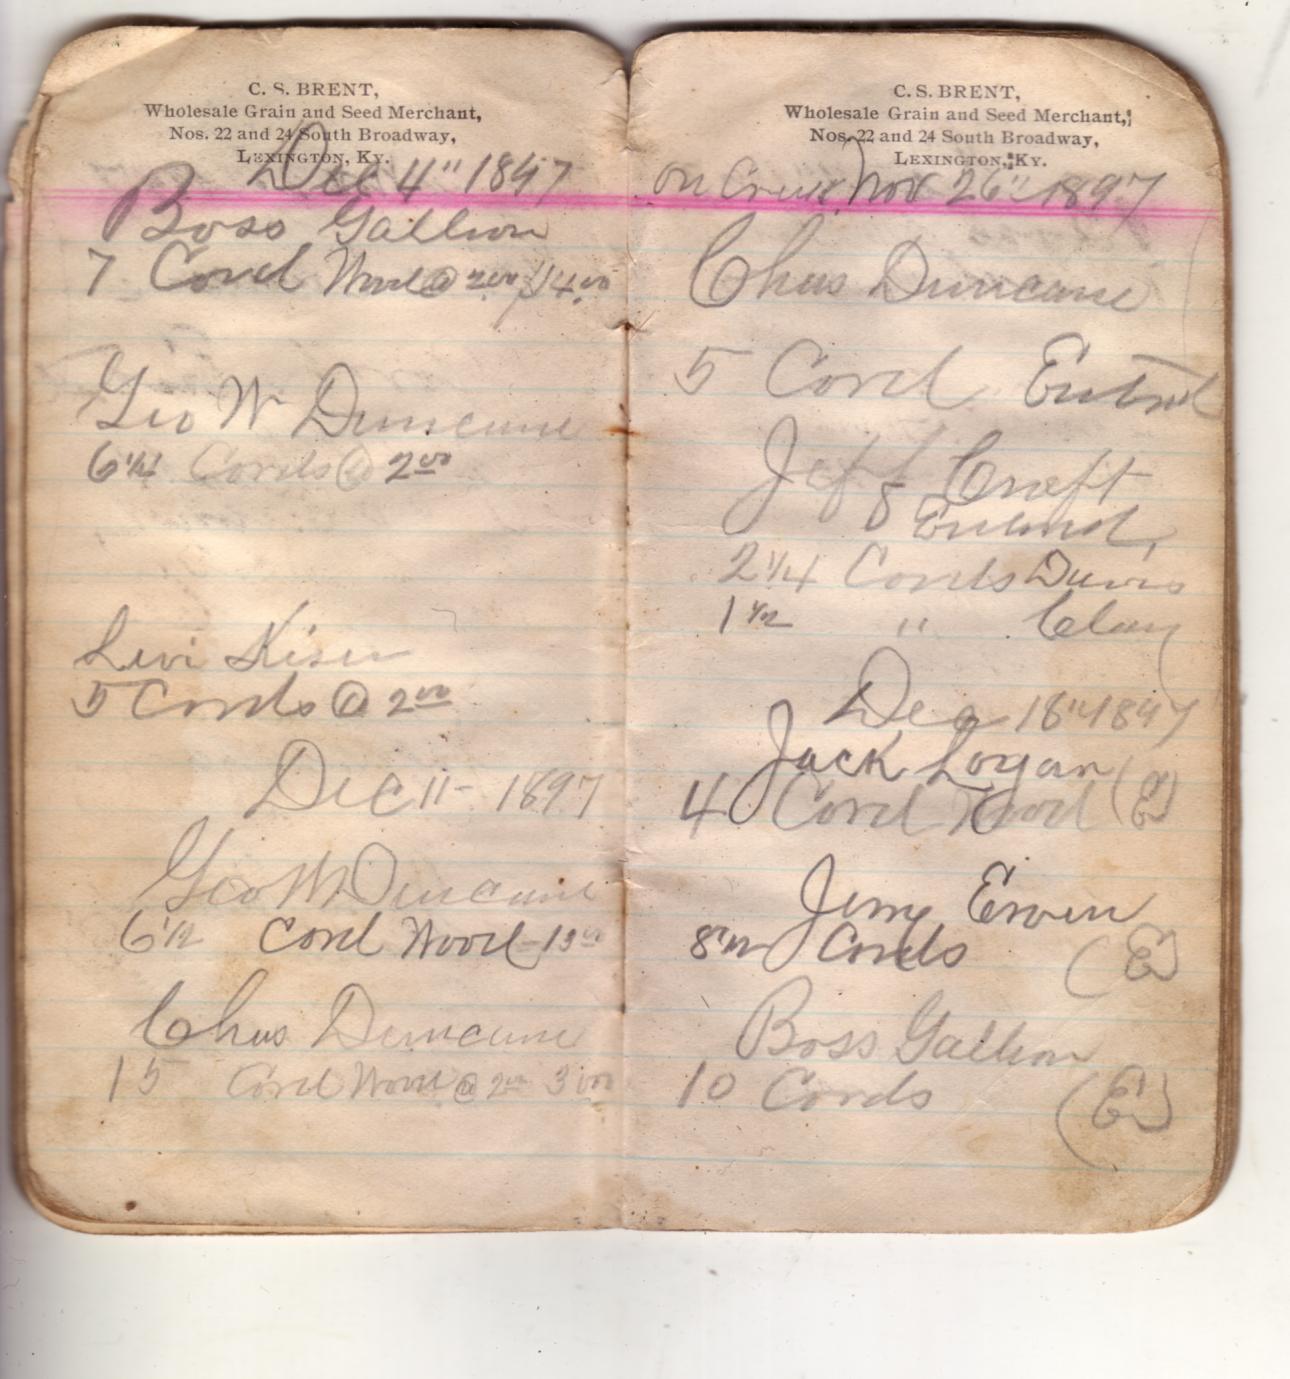 C. S. BRENT,
Wholesale Grain and Seed Merchant,
Nos. 22 and 24 South Broadway,
LEXINGTON, KY.
Dec 4" 1897
Boss Gallion
7 Cord Wood @ 2.00 $14.00
Geo W Duncane
6 1/2 Cords @ 2.00
Levi Kiser
5 Cords @ 2.00
Dec 11- 1897
Geo W Duncane
6 1/2 Cord Wood - 13.00
Chas Duncane
15 Cord Wood @ 2.00 30.00
C. S. BRENT,
Wholesale Grain and Seed Merchant,
Nos. 22 and 24 South Broadway,
LEXINGTON, KY.
on Creek Nov 26" 1897
Chas Duncane
5 Cord Enterd
Jeff Craft
8 Enterd,
2 1/4 Cords Davis
1 1/2 " Clay
Dec 18" 1897
Jack Logan
4 Cord Wood (E)
Jerry Erwin
8 1/2 Cords (E)
Boss Gallion
10 Cords (E)